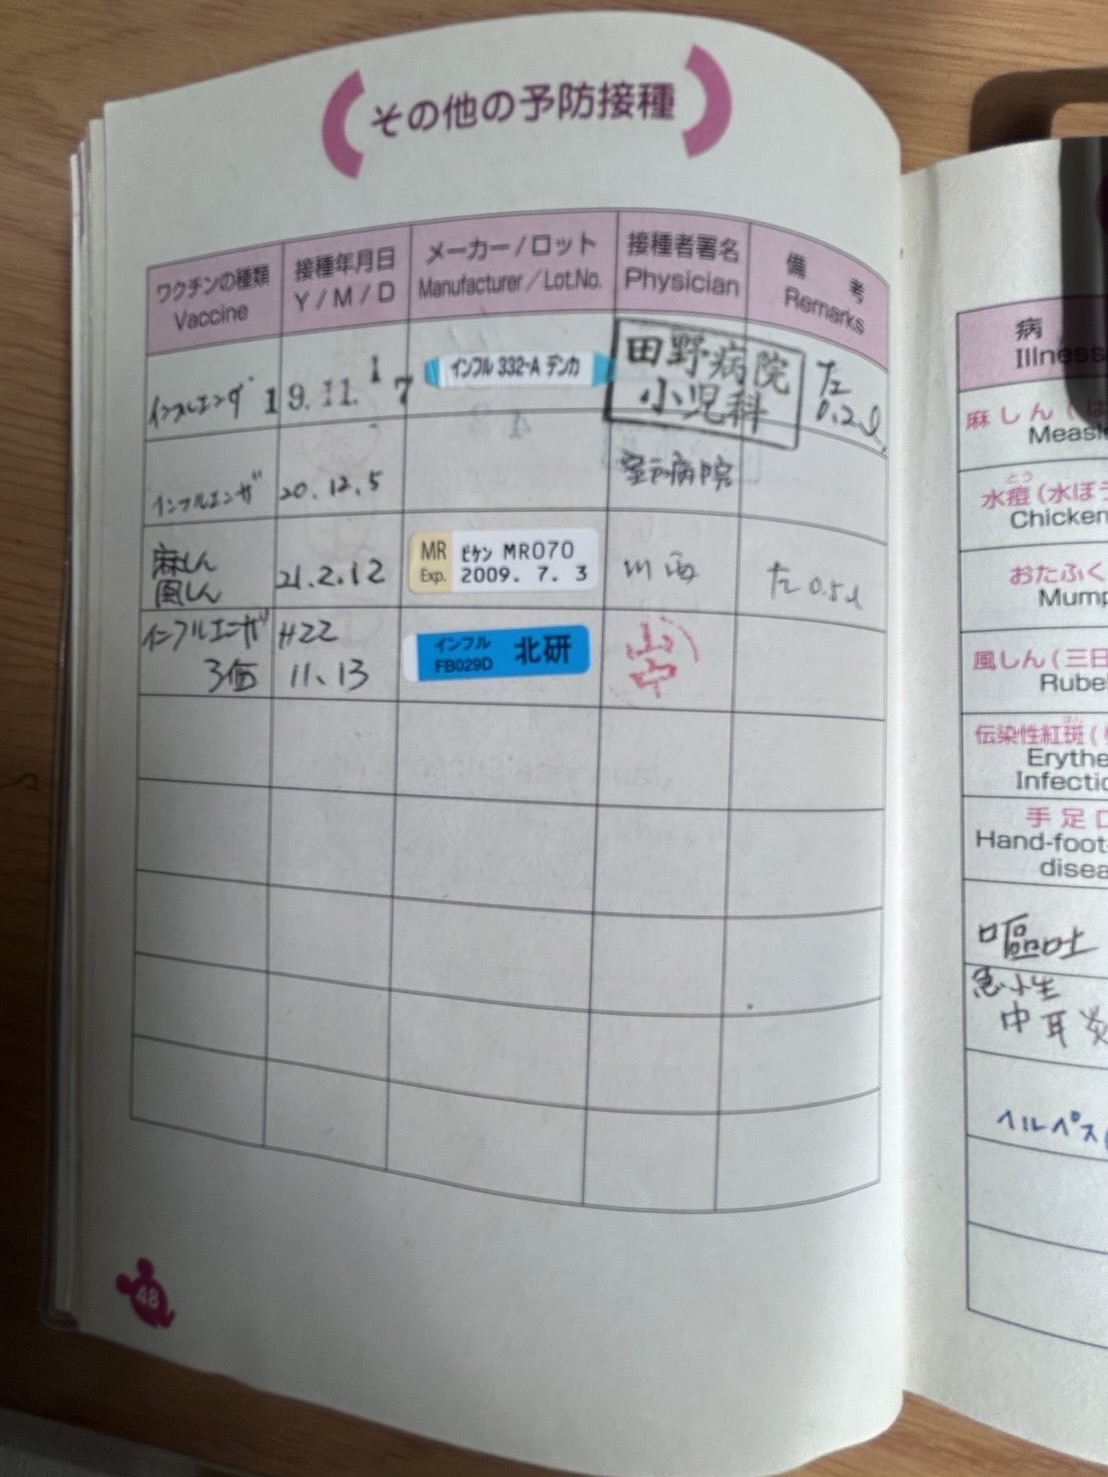 その他の予防接種
ワクチンの種類
Vaccine
接種年月日
Y / M / D
メーカー / ロット
Manufacturer / Lot.No.
接種者署名
Physician
備 考
Remarks
インフルエンザ
19. 11. 17
インフル 332-A デンカ
田野病院
小児科
左
0.2
インフルエンザ
20. 12. 5
室戸病院
麻しん
風しん
21. 2. 12
MR
Exp.
ビケン MR070
2009. 7. 3
川西
左 0.5
インフルエンザ
3価
H22
11. 13
インフル
FB029D
北研
山中
48
病
Illness
麻しん(は
Measl
水痘(水ぼう
とう
Chicken
おたふく
Mump
風しん(三日
Rube
伝染性紅斑(
Erythe
Infectio
手足口
Hand-foot-
disea
嘔吐
急性
中耳炎
ヘルペス